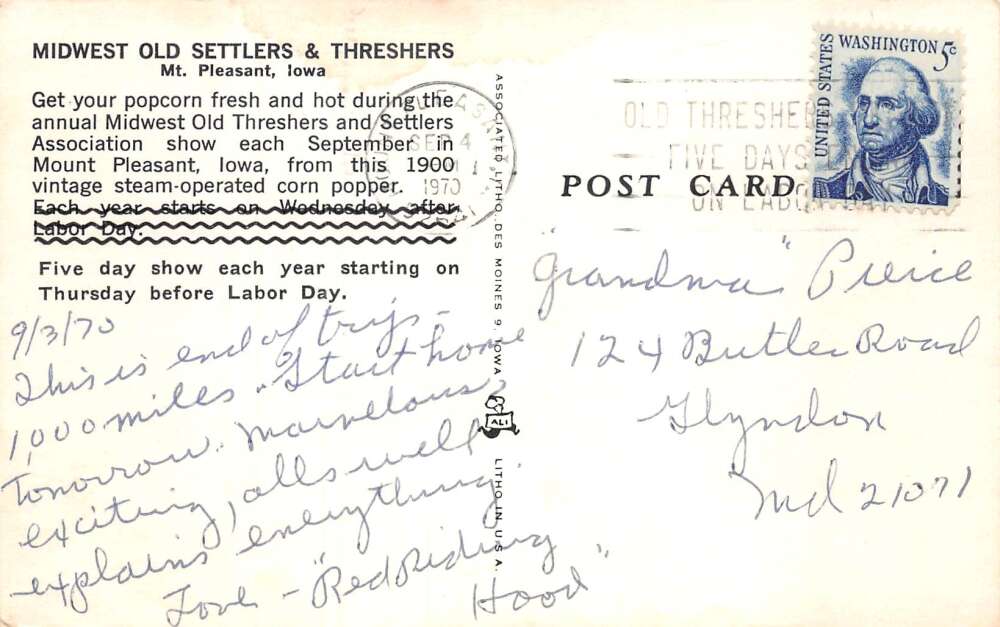 MIDWEST OLD SETTLERS & THRESHERS
Mt. Pleasant, Iowa
Get your popcorn fresh and hot during the
annual Midwest Old Threshers and Settlers
Association show each September in
Mount Pleasant, Iowa, from this 1900
vintage steam-operated corn popper.
Each year starts on Wednesday after
Labor Day.
Five day show each year starting on
Thursday before Labor Day.
9/3/70
This is end of trip -
1,000 miles. Start home
Tomorrow. Marvelous,
exciting, alls well
explains everything
Love - "Red Riding
Hood"
ASSOCIATED LITHO, DES MOINES 9, IOWA
ALI
LITHO IN U.S.A.
SEP 4
1970
OLD THRESHE
FIVE DAYS
ON LABOR DAY
UNITED STATES
WASHINGTON 5c
POST CARD
"Grandma" Pierce
124 Butler Road
Glyndon
Md 21071